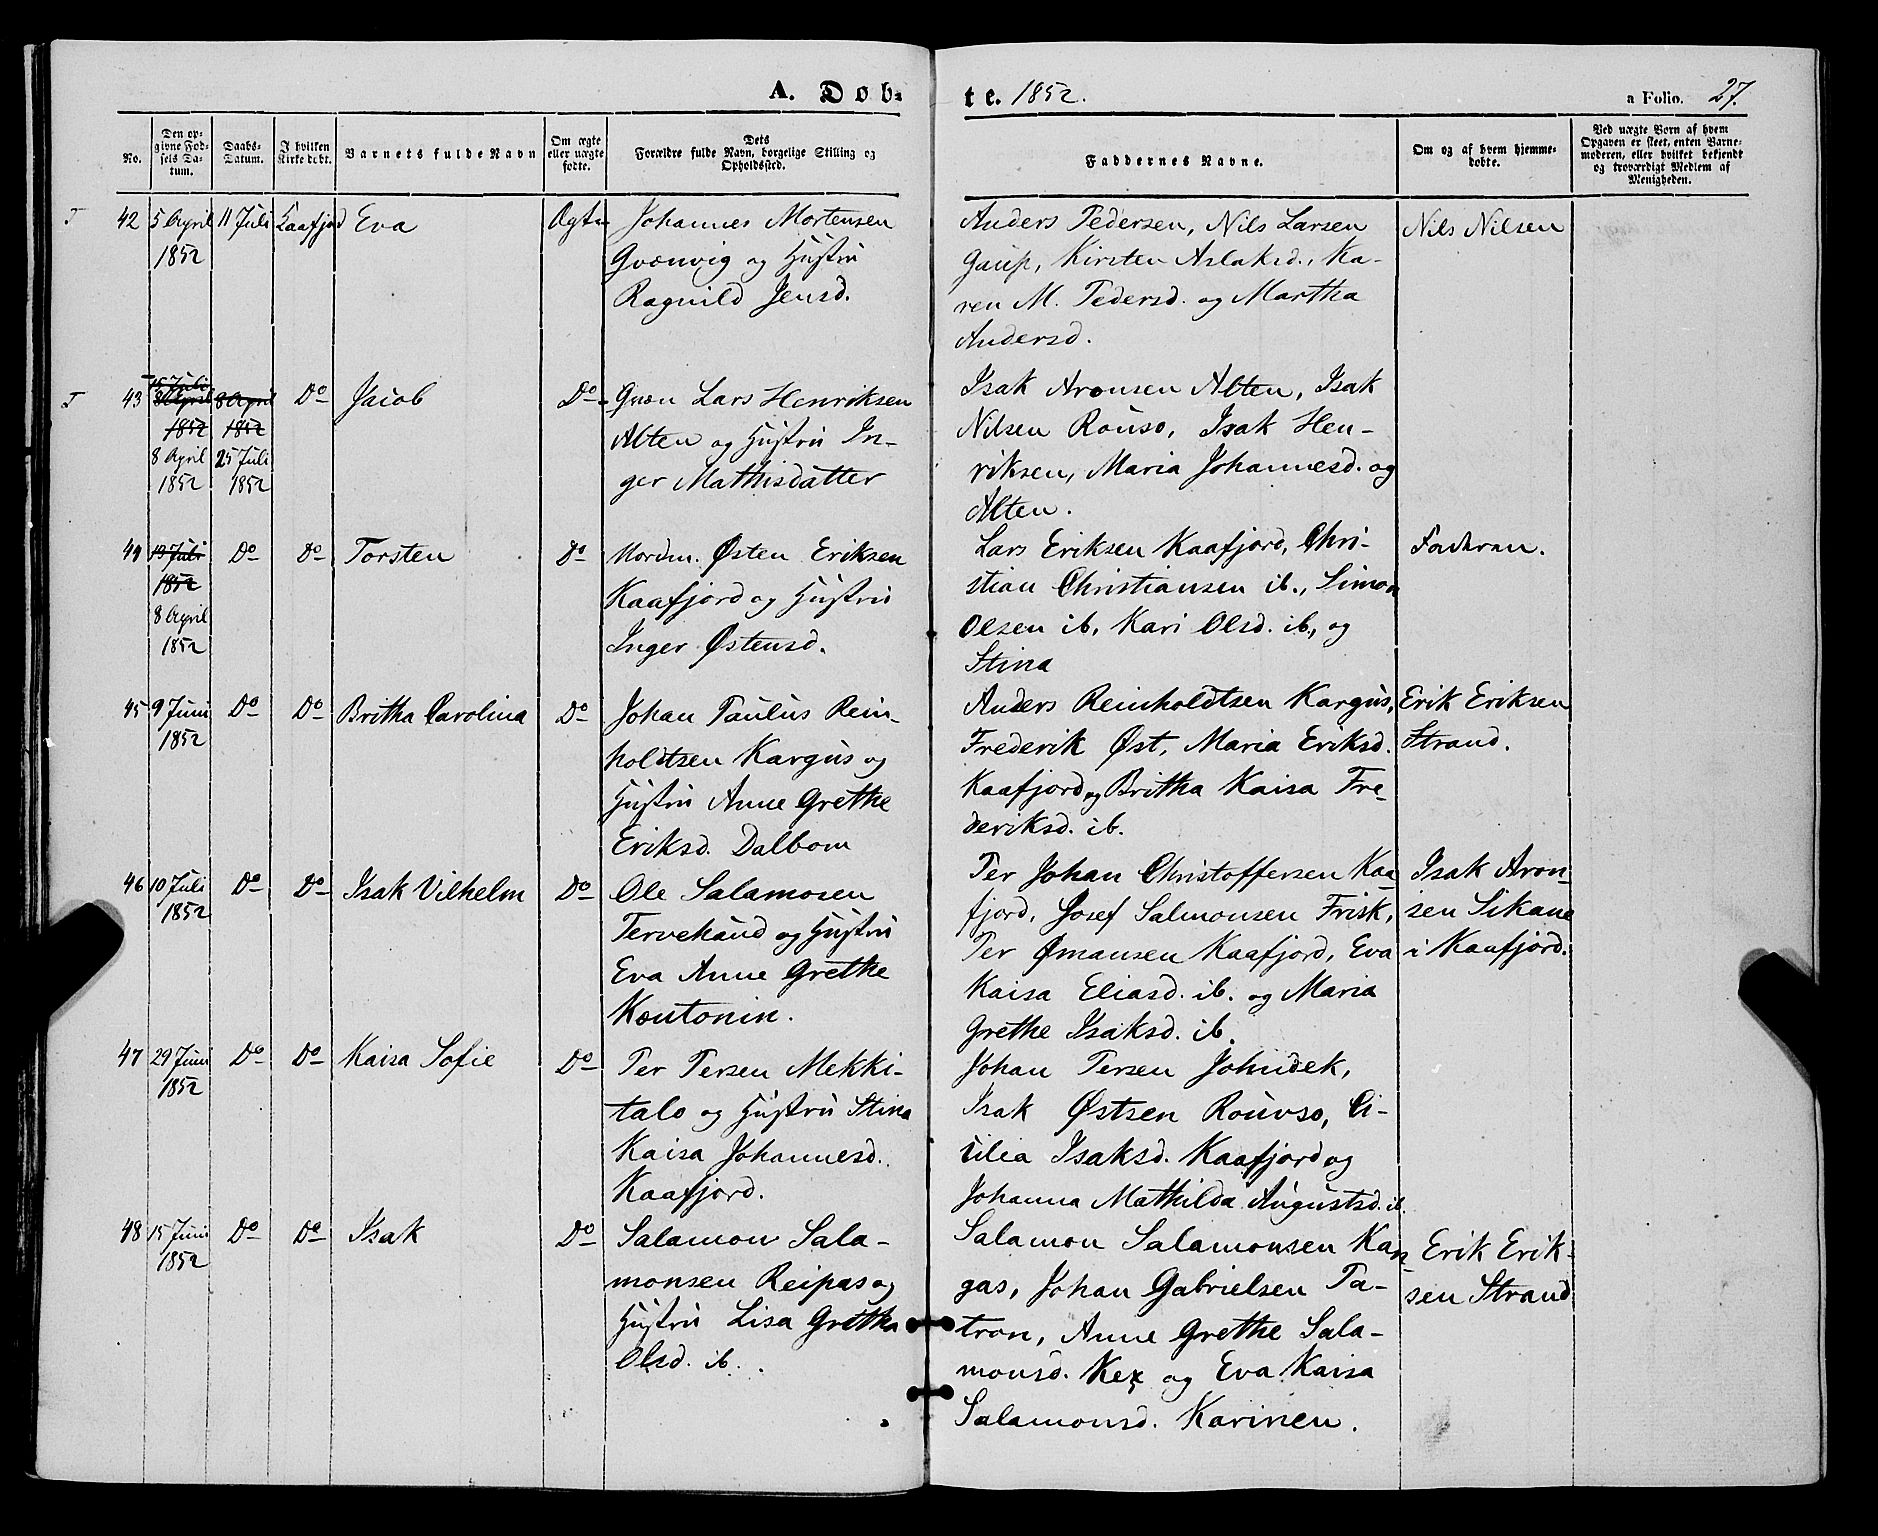 A. Døb-
te. 1852.
a Folio. 27.
No.
Den op-
givne Fød-
sels Da-
tum.
Daabs-
Datum.
I hvilken
Kirke døbt.
Barnets fulde Navn
Om ægte
eller uægte
fødte.
Dets
Forældre fulde Navn, borgelige Stilling og
Opholdssted.
Faddernes Navne.
Om og af hvem hjemme-
døbte.
Ved uægte Born af hvem
Opgaven er skeet, enten Barne-
moderen, eller hvilket bekjendt
og troværdigt Medlem af
Menigheden.
T 42 5 April 11 Juli Kaafjord Eva
1852
Johannes Mortensen
Qvænvig og Hustru
Ragnild Jensd.
Anders Pedersen, Nils Larsen
Gaup, Kirsten Aslaksd., Ka-
ren M. Pedersd. og Martha
Andersd.
Nils Nilsen
T 43 15 Juli
8 April 8 April Do Jacob Do
1852 1852
8 April 25 Juli
1852 1852
Qvæn Lars Henriksen
Alten og Hustru In-
ger Mathisdatter
Isak Aronsen Alten, Isak
Nilsen Rouso, Isak Hen-
riksen, Maria Johannesd. og
Alten.
44 13 Juli Do Do Torsten Do
1852
8 April
1852
Nordm. Østen Eriksen
Kaafjord og Hustru
Inger Østensd.
Lars Eriksen Kaafjord, Chri-
stian Christiansen ib., Simon
Olsen ib, Kari Olsd. ib, og
Stina
Faderen.
45 9 Juni Do Do Britha Carolina Do
1852
Johan Paulus Rein-
holdtsen Kargus og
Hustru Anne Grethe
Eriksd. Dalbom
Anders Reinholdtsen Kargus,
Frederik Øst, Maria Eriksd.
Kaafjord og Britha Kaisa Fre-
deriksd. ib.
Erik Eriksen
Strand.
46 10 Juli Do Do Isak Vilhelm Do
1852
Ole Salamosen
Tervehaud og Hustru
Eva Anne Grethe
Kæutonin.
Per Johan Christoffersen Kaa-
fjord, Josef Salmonsen Frisk,
Per Ømansen Kaafjord, Eva
Kaisa Eliasd. ib. og Maria
Grethe Isaksd. ib.
Isak Aron-
sen Sikane
i Kaafjord.
47 29 Juni Do Do Kaisa Sofie Do
1852
Per Persen Mekki-
talo og Hustru Stina
Kaisa Johannesd.
Kaafjord.
Johan Persen Johndek,
Isak Østsen Rouvso, Ci-
cilia Isaksd. Kaafjord og
Johanna Mathilda Augustsd. ib
48 15 Juni Do Do Isak Do
1852
Salamon Sala-
monsen Reipas og
Hustru Lisa Gretha
Olsd. ib.
Salamon Salamonsen Kan-
gas, Johan Gabrielsen Pa-
tron, Anne Grethe Sala-
monsd. Kex og Eva Kaisa
Salamonsd. Karinen.
Erik Erik-
sen Strand